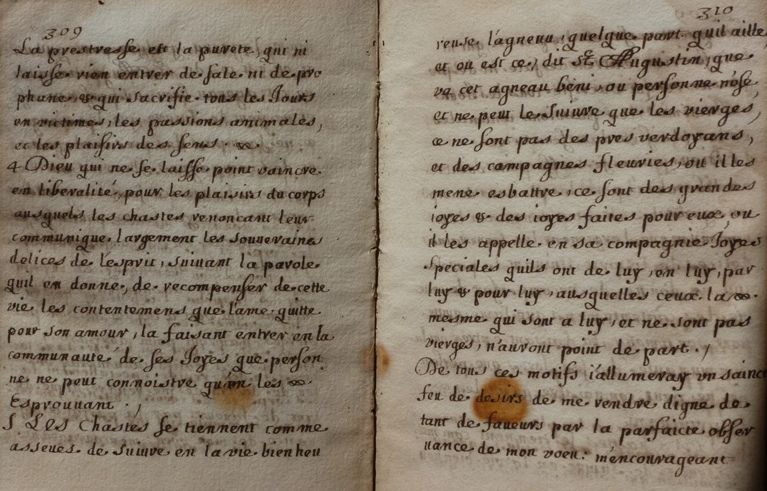 309
La prestresse est la pureté, qui ni
laisse rien entrer de sale ni de pro
phane, & qui sacrifie tous les Jours
en victimes, les passions animales,
et les plaisirs des sens.
4 Dieu qui ne se laisse point vaincre
en liberalité, pour les plaisirs du corps
ausquels les chastes renoncant leur
communique largement les souveraines
delices de l'esprit, suivant la parole
quil en donne, de recompenser de cette
vie les contentemens que l'ame quitte
pour son amour, la faisant entrer en la
communauté de ses Joyes que person
ne ne peut connoistre qu'en les
Esprouvant.
5 Les Chastes se tiennent comme
asseués de suivre en la vie bienheu
310
reuse l'agneau, quelque part quil aille,
et ou est ce, dit St. Augustin, que
va cet agneau béni, ou personne n'ose
et ne peut le suivre que les vierges,
ce ne sont pas des pres verdoyans,
et des campagnes fleuries, ou il les
mene esbattre, ce sont des grandes
ioyes & des ioyes faites pour eux, ou
il les appelle en sa compagnie Joyes
speciales quils ont de luy, en luy, par
luy & pour luy, ausquelles ceux la
mesme qui sont a luy, et ne sont pas
vierges, n'auront point de part. /
De tous ces motifs i'allumeray un sainct
feu de desirs de me vendre digne de
tant de faveurs par la parfaicte obser
vance de mon voeu: m'encourageant